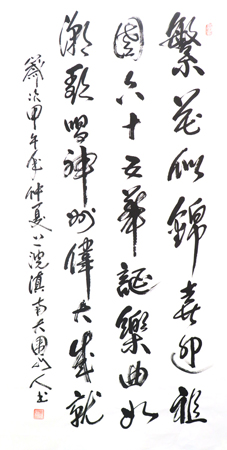 繁花似錦喜迎祖
國六十五華誕樂曲如
潮歌唱神州偉大成就
歲次甲午年仲夏上浣滇南大圍山人书